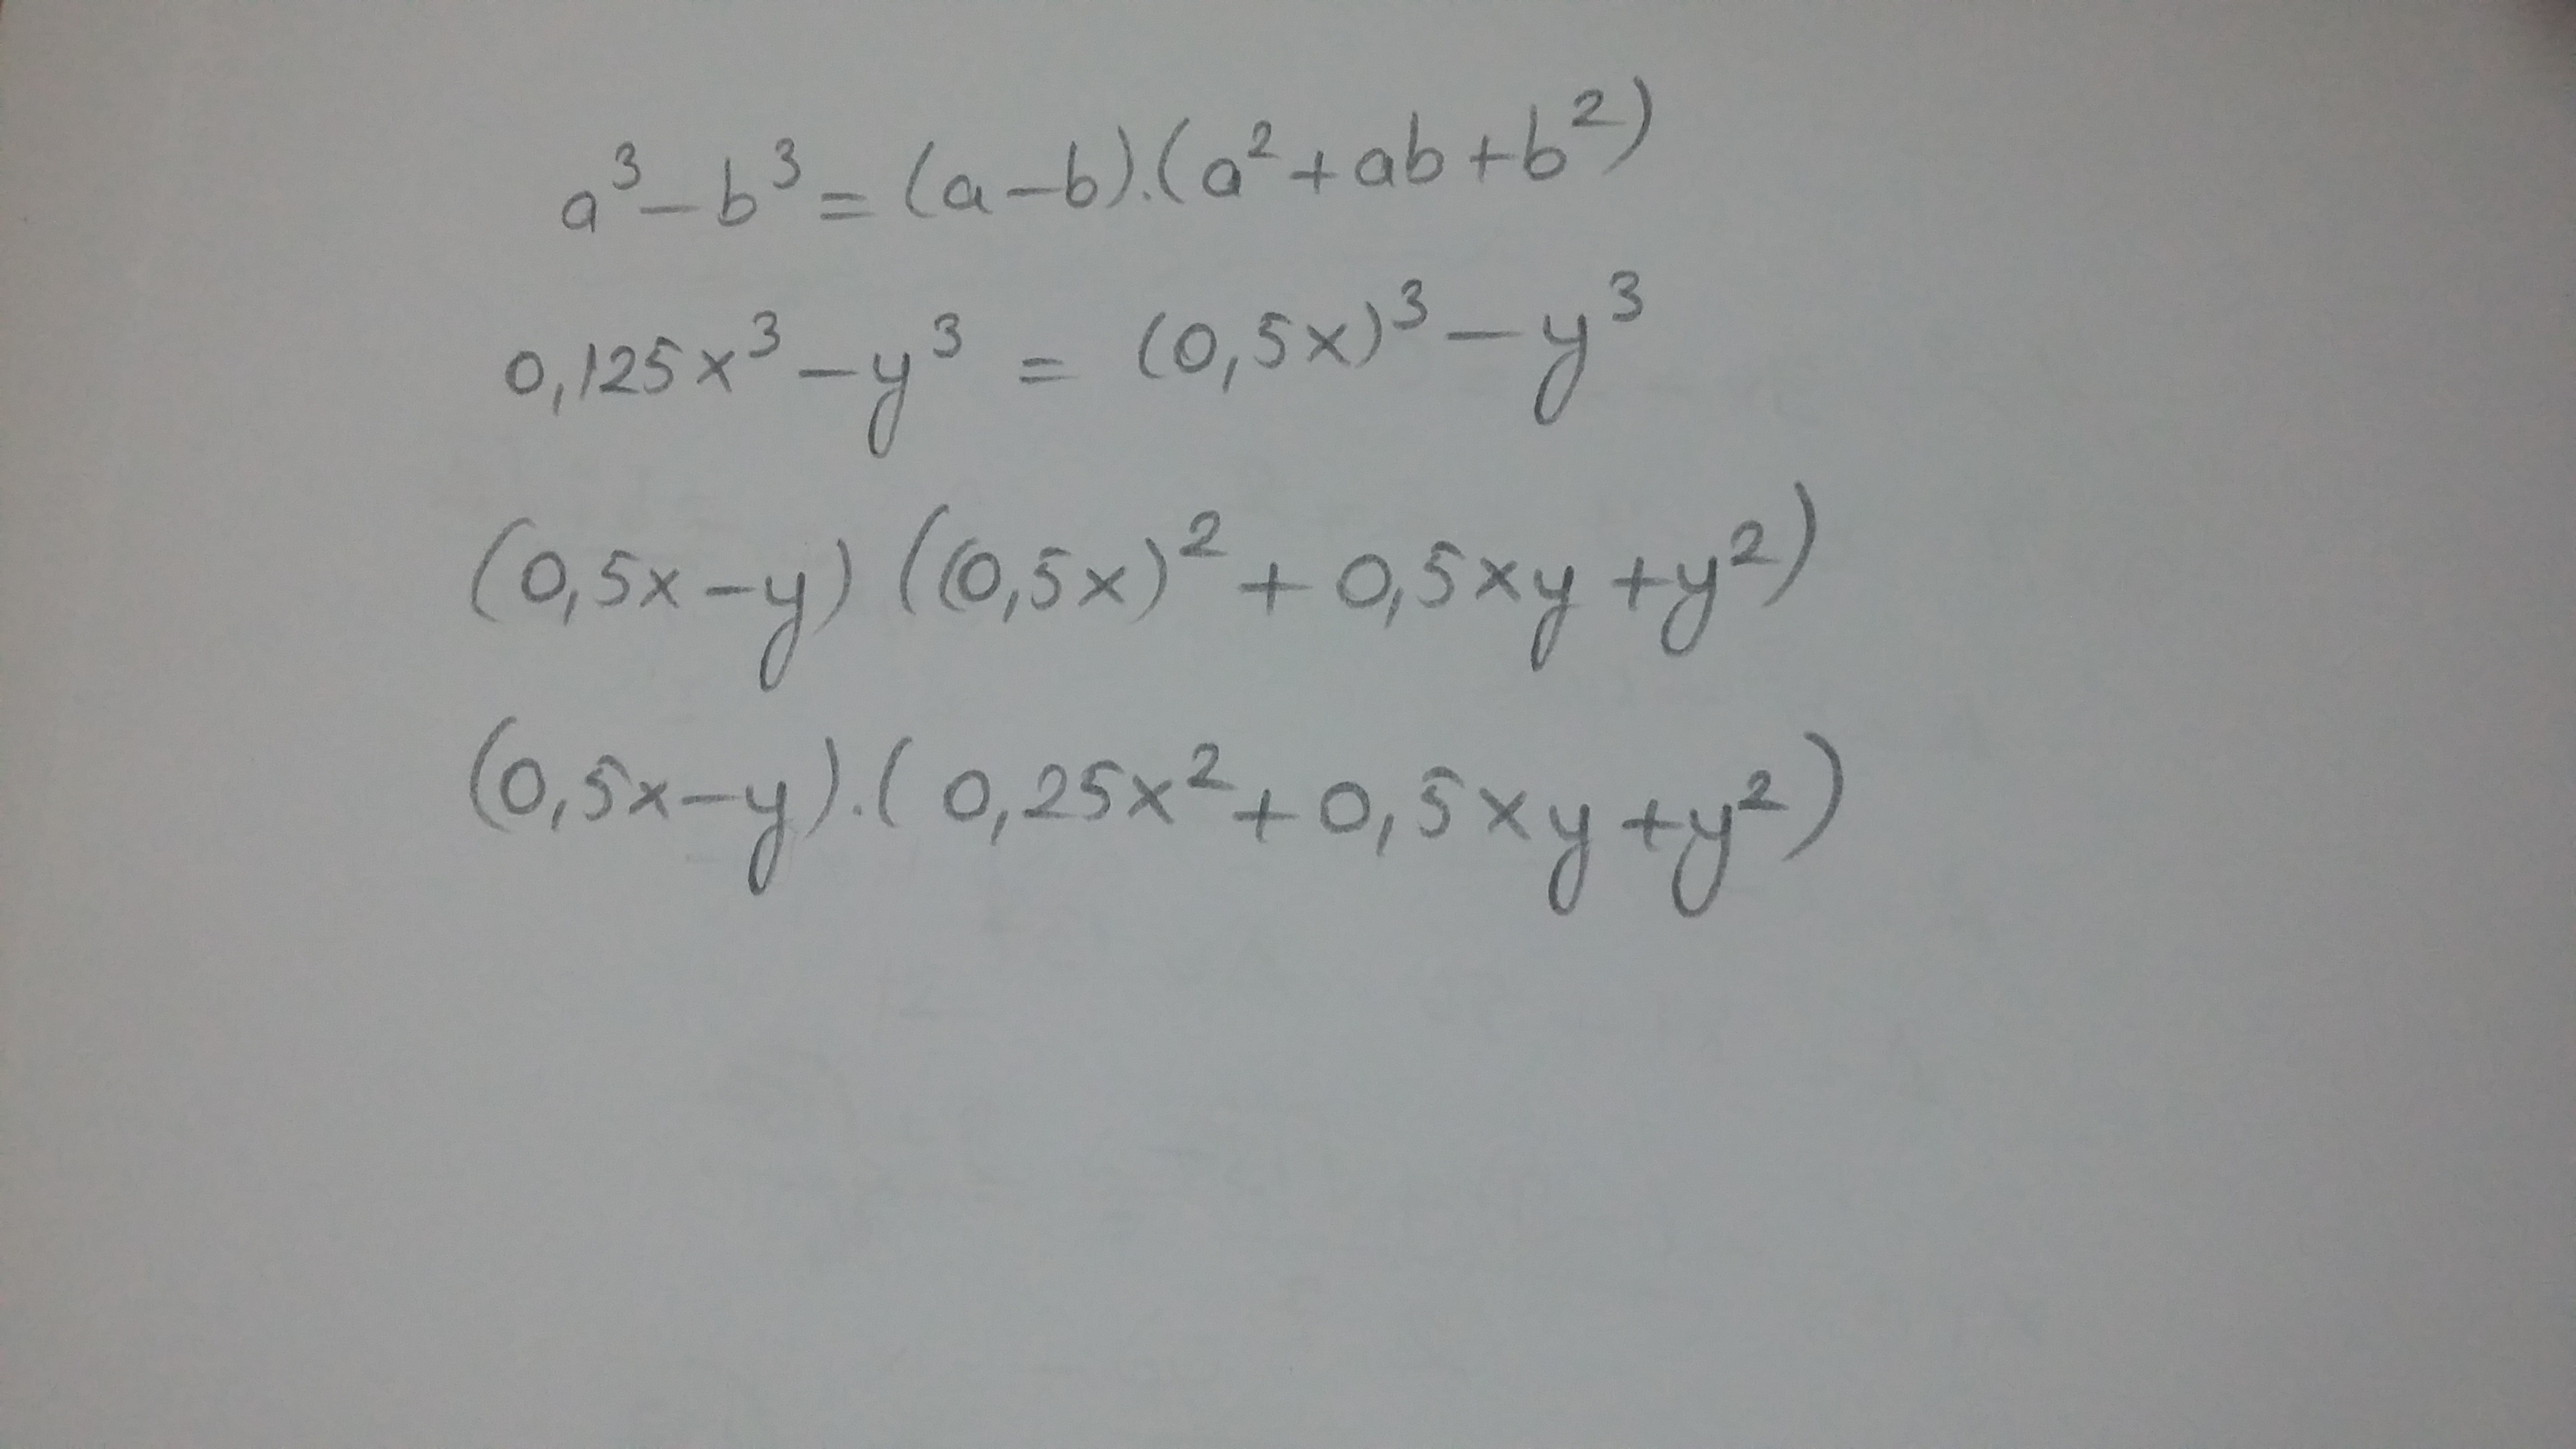 a³ – b³ = (a – b).(a² + ab + b²)
0,125x³ – y³ = (0,5x)³ – y³
(0,5x – y) ((0,5x)² + 0,5xy + y²)
(0,5x – y).( 0,25x² + 0,5xy + y²)